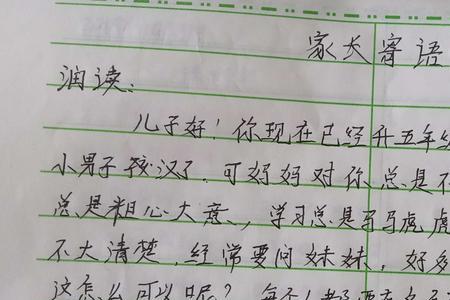 家长寄语
润读:
儿子好！你现在已经升五年级
小男子孩汉了.可妈妈对你总是不
总是粗心大意、,学习总是马马虎虎
不大清楚,经常要问妹妹,好多
这怎么可以呢？每个